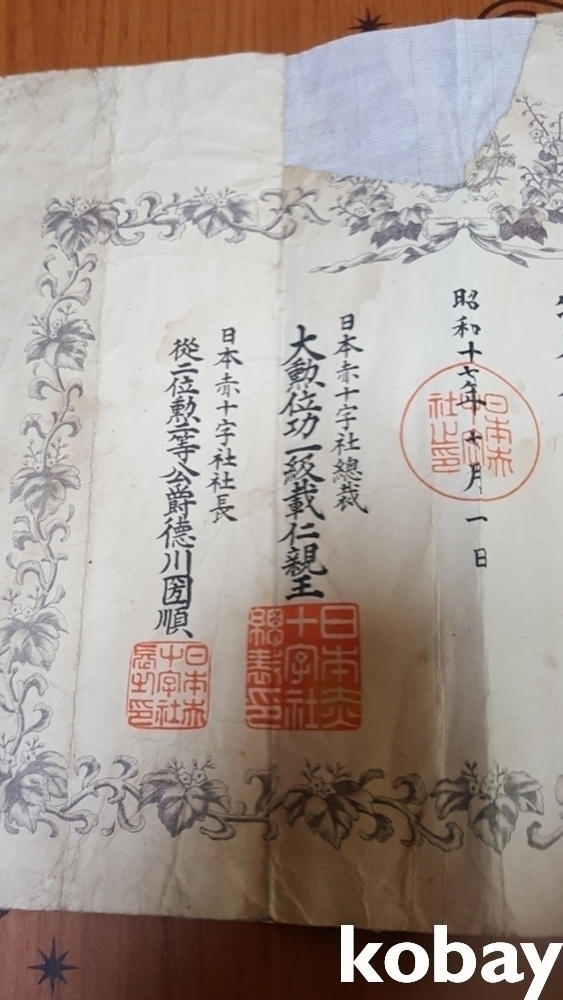 昭和十七年十月一日
日本赤十字社總裁
大勲位功一級載仁親王
日本赤十字社社長
從二位勲一等公爵德川圀順
日本赤十字社總裁印
日本赤十字社長之印
kobay